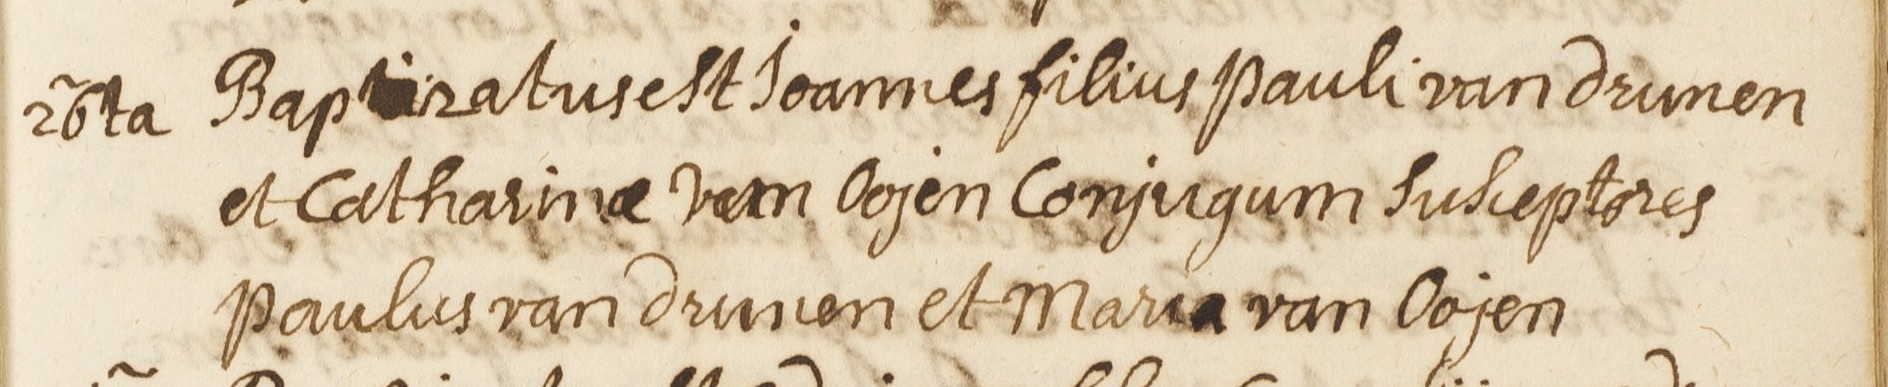 26ta Baptizatus est Joannes filius Pauli van drunen
et Catharinæ van Oojen Conjugum Susceptores
Paulus van drunen et Maria van Oojen